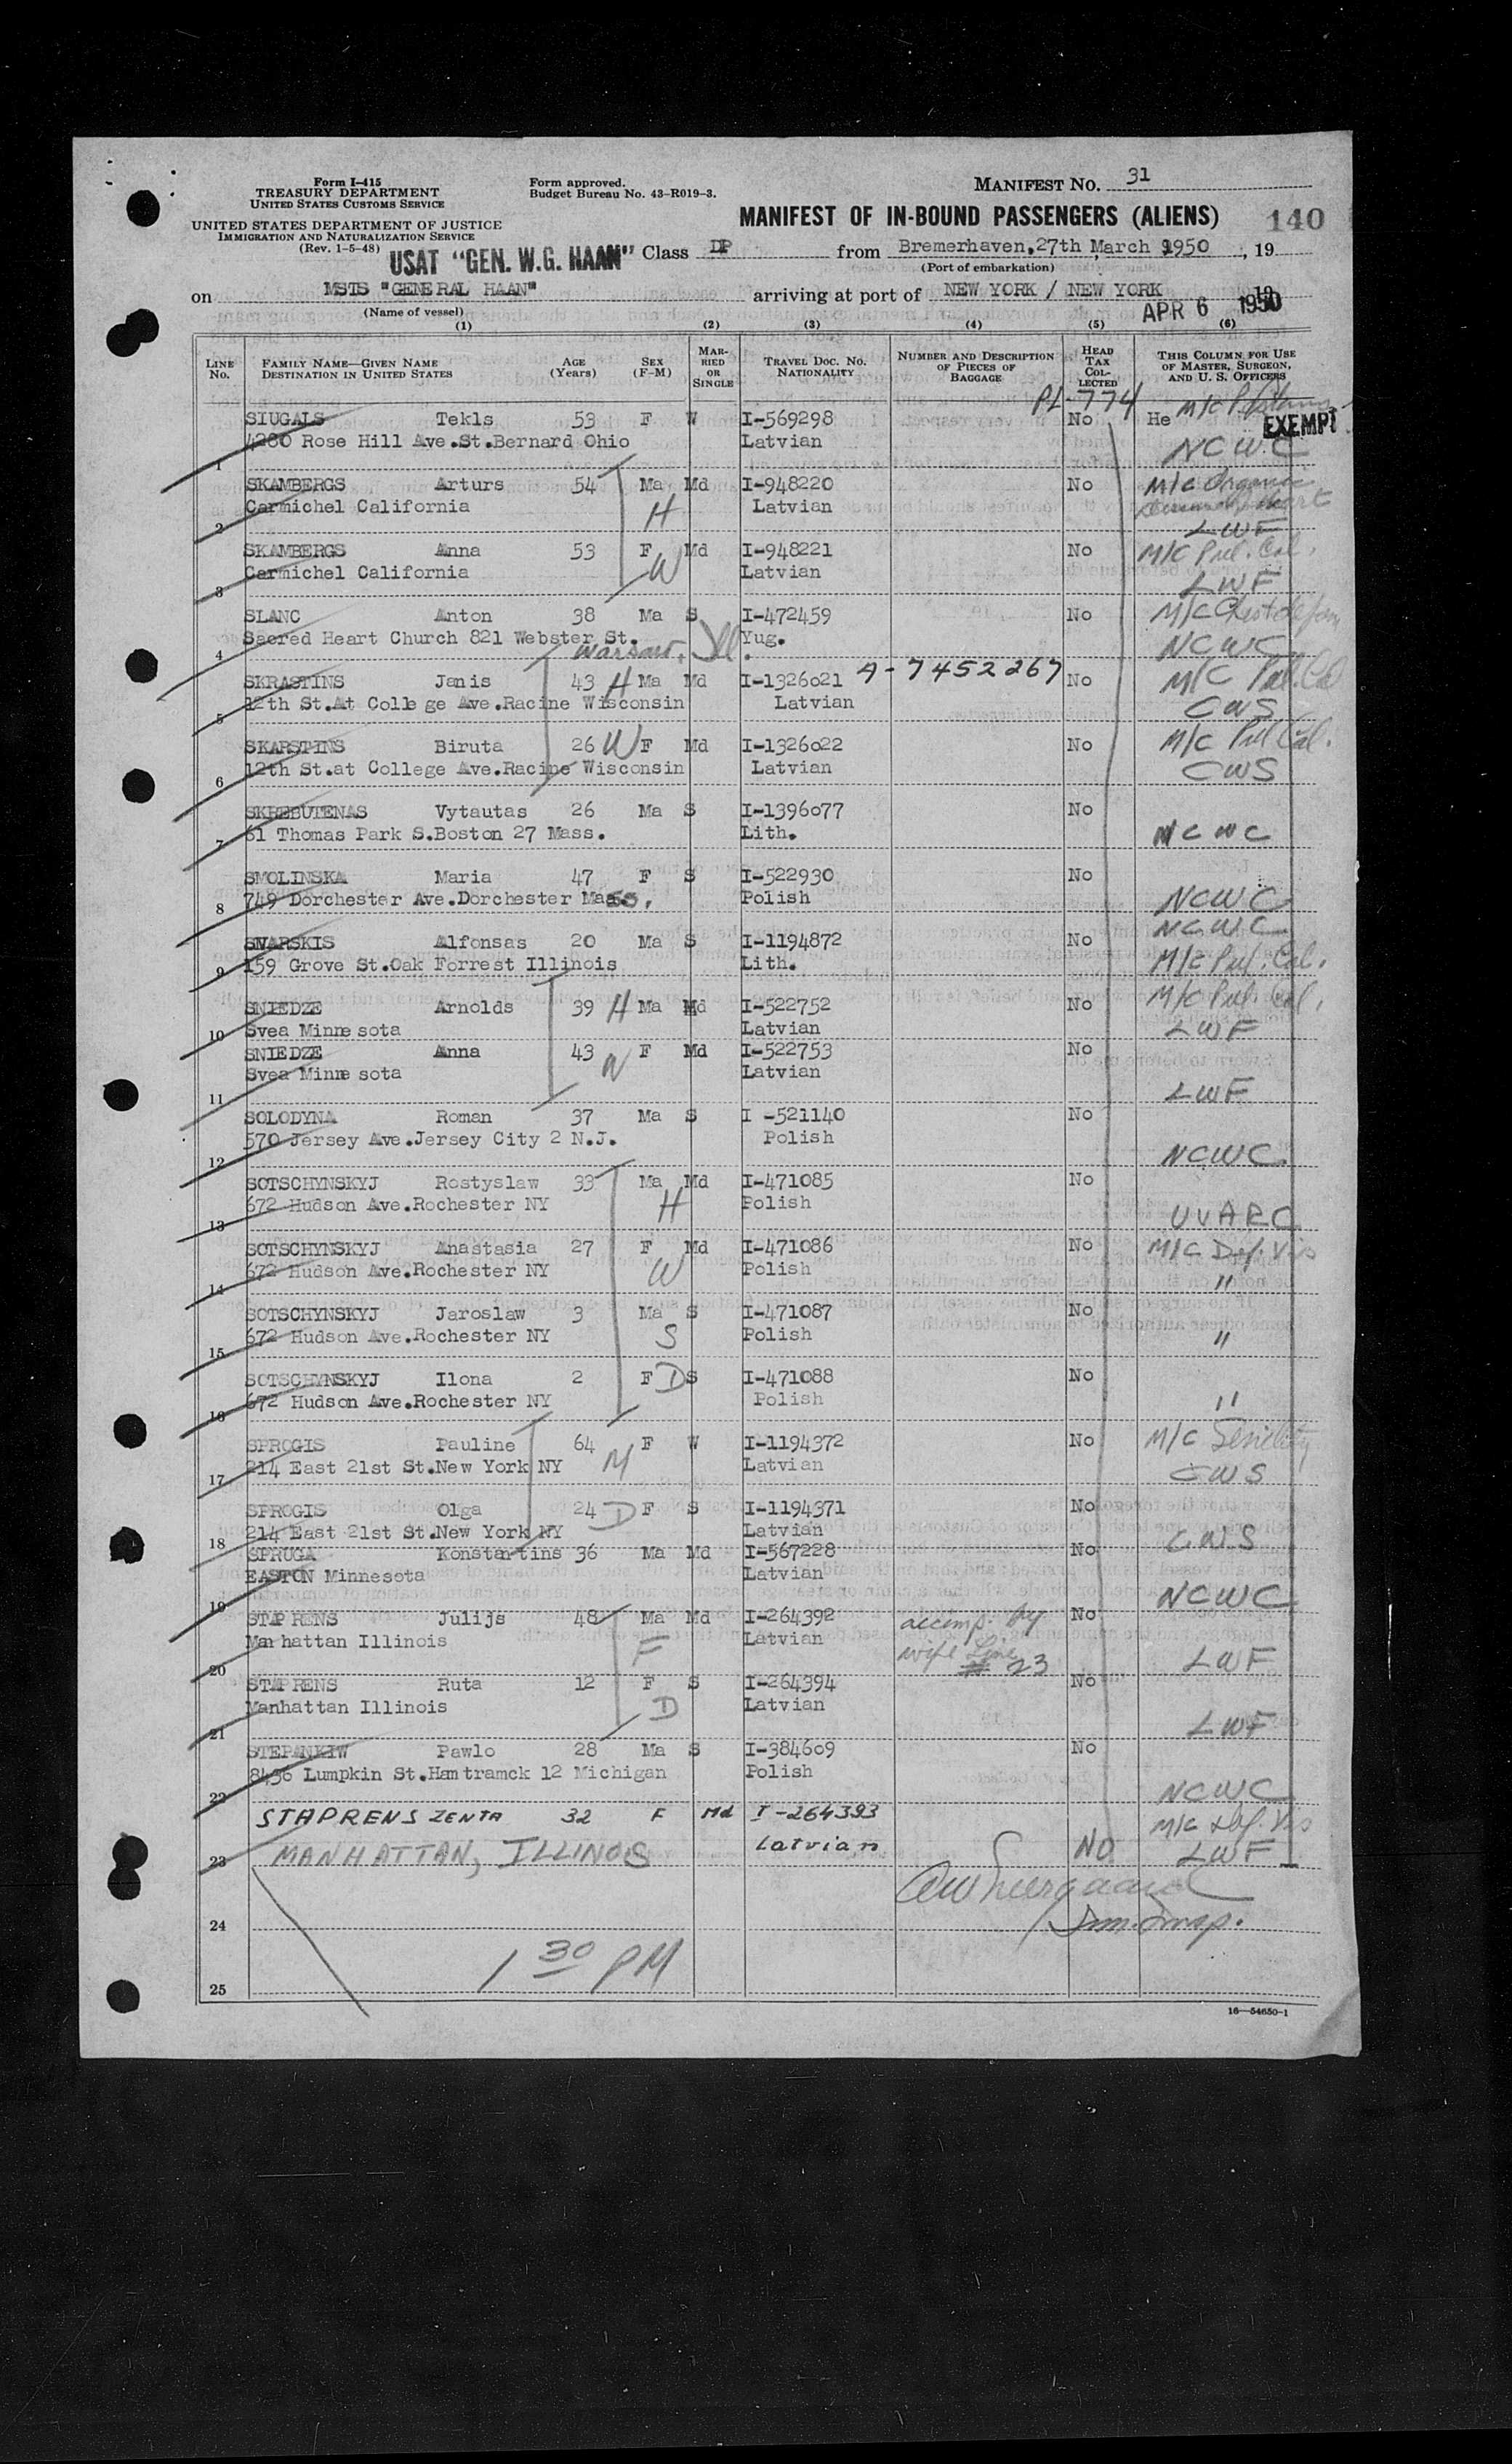 Form I-415
TREASURY DEPARTMENT
UNITED STATES CUSTOMS SERVICE
UNITED STATES DEPARTMENT OF JUSTICE
IMMIGRATION AND NATURALIZATION SERVICE
(Rev. 1-5-48)
Form approved.
Budget Bureau No. 43-R019-3.
MANIFEST NO. 31
MANIFEST OF IN-BOUND PASSENGERS (ALIENS) 140
USAT "GEN. W.G. HAAN" Class DP from Bremerhaven,27th March 1950, 19
(Port of embarkation)
on MSTS "GENERAL HAAN" arriving at port of NEW YORK / NEW YORK
APR 6 1950
(Name of vessel)
(1) (2) (3) (4) (5) (6)
LINE No. FAMILY NAME—GIVEN NAME DESTINATION IN UNITED STATES AGE (Years) SEX (F-M) MARRIED OR SINGLE TRAVEL DOC. NO. NATIONALITY NUMBER AND DESCRIPTION OF PIECES OF BAGGAGE HEAD TAX COLLECTED THIS COLUMN FOR USE OF MASTER, SURGEON, AND U. S. OFFICERS
PL-774
SIUGALS Tekls 53 F W I-569298 No He M/C EXEMPT
1 4280 Rose Hill Ave.St.Bernard Ohio Latvian NCWC
SKAMBERGS Arturs 54 Ma Md I-948220 No M/C Organic
2 Carmichel California H Latvian Heart LWF
SKAMBERGS Anna 53 F Md I-948221 No M/C Pul. Cal.
3 Carmichel California W Latvian LWF
SLANC Anton 38 Ma S I-472459 No M/C Chest
4 Sacred Heart Church 821 Webster St. Yug. NCWC
Warsaw, Ill.
SKRASTINS Janis 43 H Ma Md I-1326021 A-7452267 No M/C Pul. Cal
5 12th St.At College Ave.Racine Wisconsin Latvian CWS
SKARSTINS Biruta 26 W F Md I-1326022 No M/C Pul Cal.
6 12th St.at College Ave.Racine Wisconsin Latvian CWS
SKREBUTENAS Vytautas 26 Ma S I-1396077 No
7 61 Thomas Park S.Boston 27 Mass. Lith. NCWC
SMOLINSKA Maria 47 F S I-522930 No
8 749 Dorchester Ave.Dorchester Mass. Polish NCWC
SNARSKIS Alfonsas 20 Ma S I-1194872 No NCWC
9 159 Grove St.Oak Forrest Illinois Lith. M/C Pul. Cal.
SNIEDZE Arnolds 39 H Ma Md I-522752 No M/C Pul. Cal.
10 Svea Minnesota Latvian LWF
SNIEDZE Anna 43 W F Md I-522753 No
11 Svea Minnesota Latvian LWF
SOLODYNA Roman 37 Ma S I -521140 No
12 570 Jersey Ave.Jersey City 2 N.J. Polish NCWC
SOTSCHYNSKYJ Rostyslaw 33 Ma Md I-471085 No
13 672 Hudson Ave.Rochester NY H Polish UUARC
SOTSCHYNSKYJ Anastasia 27 F Md I-471086 No M/C Def. Vis
14 672 Hudson Ave.Rochester NY W Polish "
SOTSCHYNSKYJ Jaroslaw 3 Ma S I-471087 No
15 672 Hudson Ave.Rochester NY S Polish "
SOTSCHYNSKYJ Ilona 2 F D S I-471088 No
16 672 Hudson Ave.Rochester NY Polish "
SPROGIS Pauline 64 F W I-1194372 No M/C Senility
17 214 East 21st St.New York NY M Latvian CWS
SPROGIS Olga 24 D F S I-1194371 No
18 214 East 21st St.New York NY Latvian CWS
SPRUGA Konstantins 36 Ma Md I-567228 No
19 EASTON Minnesota Latvian NCWC
STAPRENS Julijs 48 Ma Md I-264392 accomp. by No
20 Manhattan Illinois F Latvian wife Line # 23 LWF
STAPRENS Ruta 12 F S I-264394 No
21 Manhattan Illinois D Latvian LWF
STEPANKIW Pawlo 28 Ma S I-384609 No
22 8436 Lumpkin St.Hamtramck 12 Michigan Polish NCWC
STAPRENS ZENTA 32 F Md I-264393 M/C Def. Vis
23 MANHATTAN, ILLINOIS Latvian NO LWF
24 Imm. Insp.
1 30 PM
25
16—54650-1